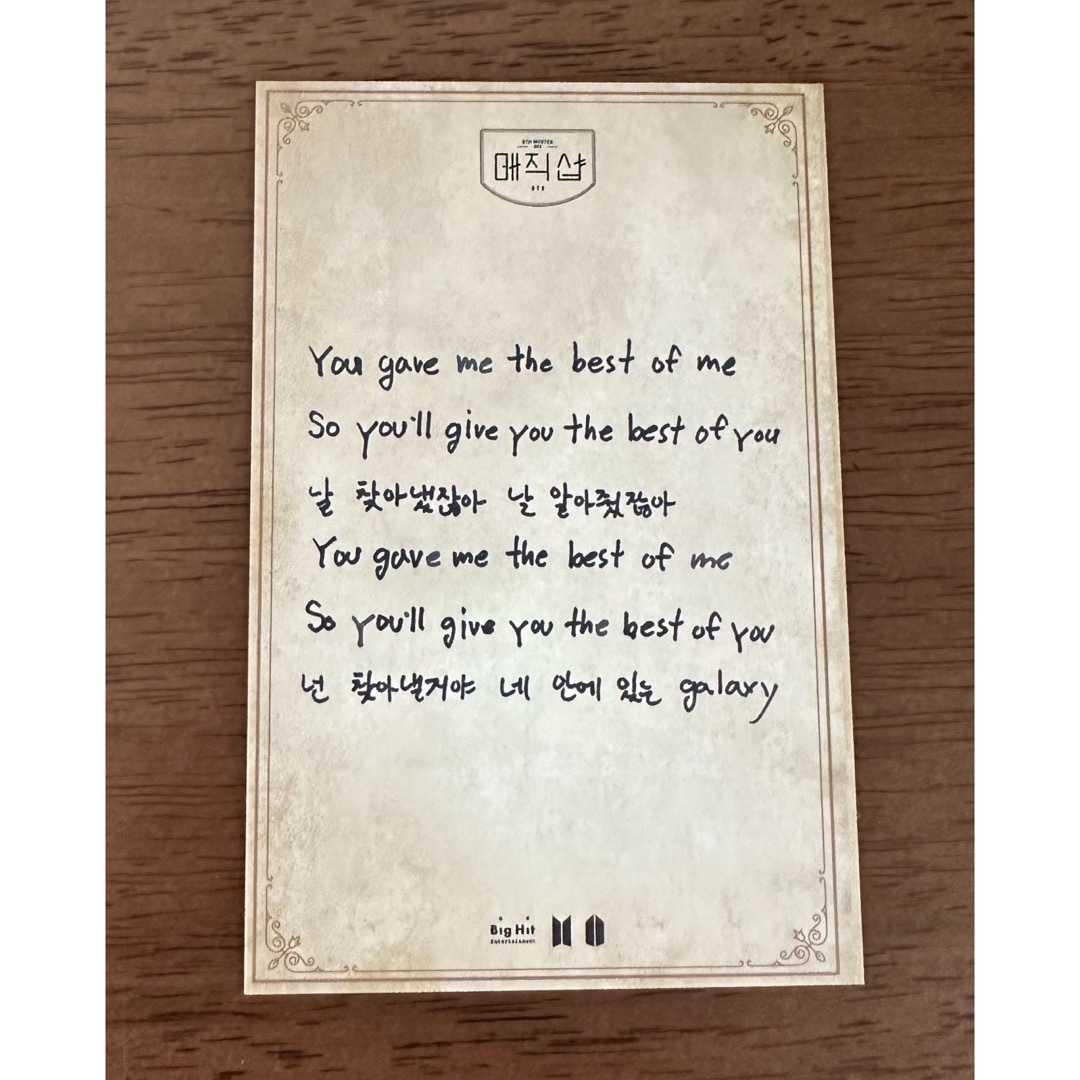 5TH MUSTER
BTS
매직샵
You gave me the best of me
So you'll give you the best of you
날 찾아냈잖아 날 알아줬잖아
You gave me the best of me
So you'll give you the best of you
넌 찾아낼거야 네 안에 있는 galaxy
Big Hit
Entertainment